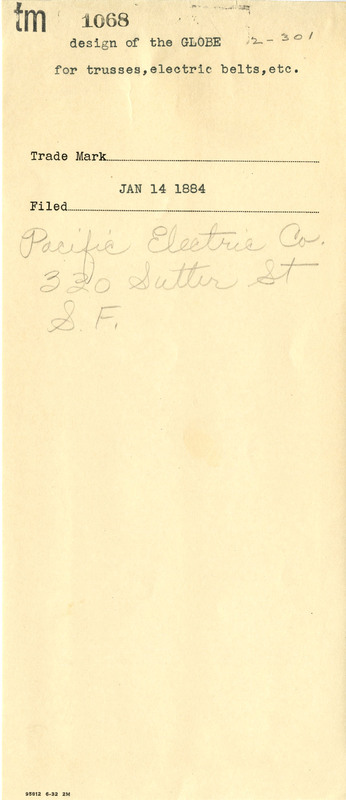 tm 1068
design of the GLOBE 2-301
for trusses,electric belts,etc.
Trade Mark
JAN 14 1884
Filed
Pacific Electric Co.
320 Sutter St
S. F.
95912 6-32 2M